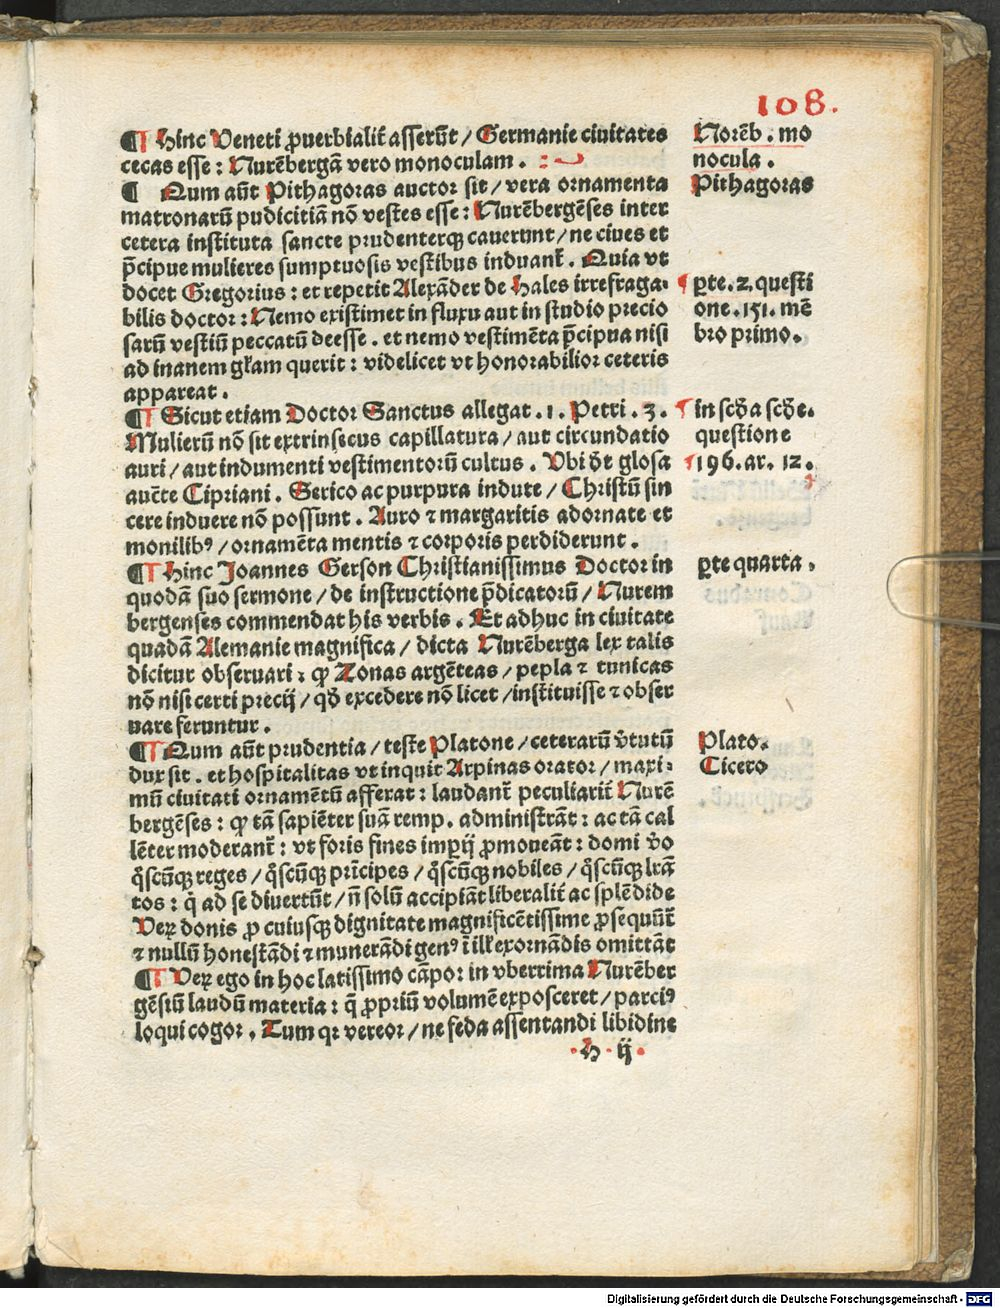 108.
¶ Hinc Veneti ꝓuerbialit̃ asserũt / Germanie ciuitates
cecas esse : Nurẽbergã vero monoculam .
¶ Qum aũt Pithagoras auctor sit / vera ornamenta
matronarũ pudicitiã nõ vestes esse : Nurẽbergẽses inter
cetera instituta sancte prudenterqꝫ cauerunt / ne ciues et
p̃cipue mulieres sumptuosis vestibus induant̃ . Quia vt
docet Gregorius : et repetit Alexãder de Hales irrefraga⸗
bilis doctor : Nemo existimet in fluxu aut in studio precio
sarũ vestiũ peccatũ deesse . et nemo vestimẽta p̃cipua nisi
ad inanem gl̃am querit : videlicet vt honorabilior ceteris
appareat .
¶ Sicut etiam Doctor Sanctus allegat . 1. Petri . 3.
Mulierũ nõ sit extrinsecus capillatura / aut circundatio
auri / aut indumenti vestimentorũ cultus . Vbi d̃t glosa
auc̃te Cipriani . Serico ac purpura indute / Christũ sin
cere induere nõ possunt . Auro ⁊ margaritis adornate et
monilibꝰ / ornamẽta mentis ⁊ corporis perdiderunt .
¶ Hinc Joannes Gerson Christianissimus Doctor in
quodã suo sermone / de instructione p̃dicatorũ / Nurem
bergenses commendat his verbis . Et adhuc in ciuitate
quadã Alemanie magnifica / dicta Nurẽberga lex talis
dicitur obseruari : ꝙ Zonas argẽteas / pepla ⁊ tunicas
nõ nisi certi precij / qð excedere nõ licet / instituisse ⁊ obser
uare feruntur .
¶ Qum aũt prudentia / teste Platone / ceterarũ v̓tutũ
dux sit . et hospitalitas vt inquit Arpinas orator / maxi⸗
mũ ciuitati ornamẽtũ afferat : laudant̃ peculiarit̃ Nurẽ
bergẽses : ꝙ tã sapiẽter suã remp. administrãt : ac tã cal
lẽter moderant̃ : vt foris fines imꝑij ꝓmoueãt : domi v̓o
q̊scũqꝫ reges / q̊scũqꝫ prĩcipes / q̊scũqꝫ nobiles / q̊scũqꝫ l̃rã
tos : q̇ ad se diuertũt / ñ solũ accipiãt liberalit̃ ac splẽdide
Veꝝ donis ꝓ cuiusqꝫ dignitate magnificẽtissime ꝓsequũt̃
⁊ nullũ honestãdi ⁊ munerãdi genꝰ ĩ ill̃ exornãdis omittãt
¶ Veꝝ ego in hoc latissimo cãpo : in vberrima Nurẽber
gẽsiũ laudũ materia : q̃ ꝓpriũ volumẽ exposceret / parciꝰ
loqui cogor . Tum qꝛ vereor / ne feda assentandi libidine
H ij
Norẽb . mo
nocula .
Pithagoras
ꝑte . 2. questi
one . 151. mẽ
bro primo .
in sc̃ða sc̃ðe .
questione
196. ar. 12.
ꝑte quarta .
Plato.
Cicero
Digitalisierung gefördert durch die Deutsche Forschungsgemeinschaft - DFG